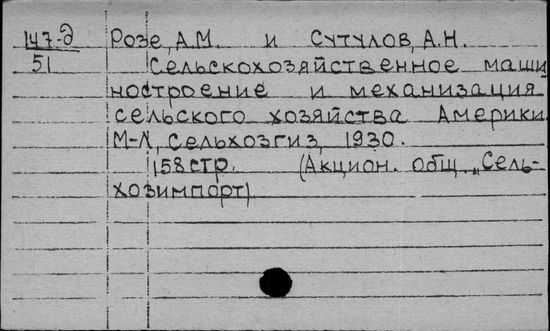 147-д Розе, А.М. и Сутулов, А.Н.
51 Сельскохозяйственное маши
ностроение и механизация
сельского хозяйства Америки.
М-Л, Сельхозгиз, 1930.
158 стр. (Акцион. общ. „Сель-
хозимпорт)